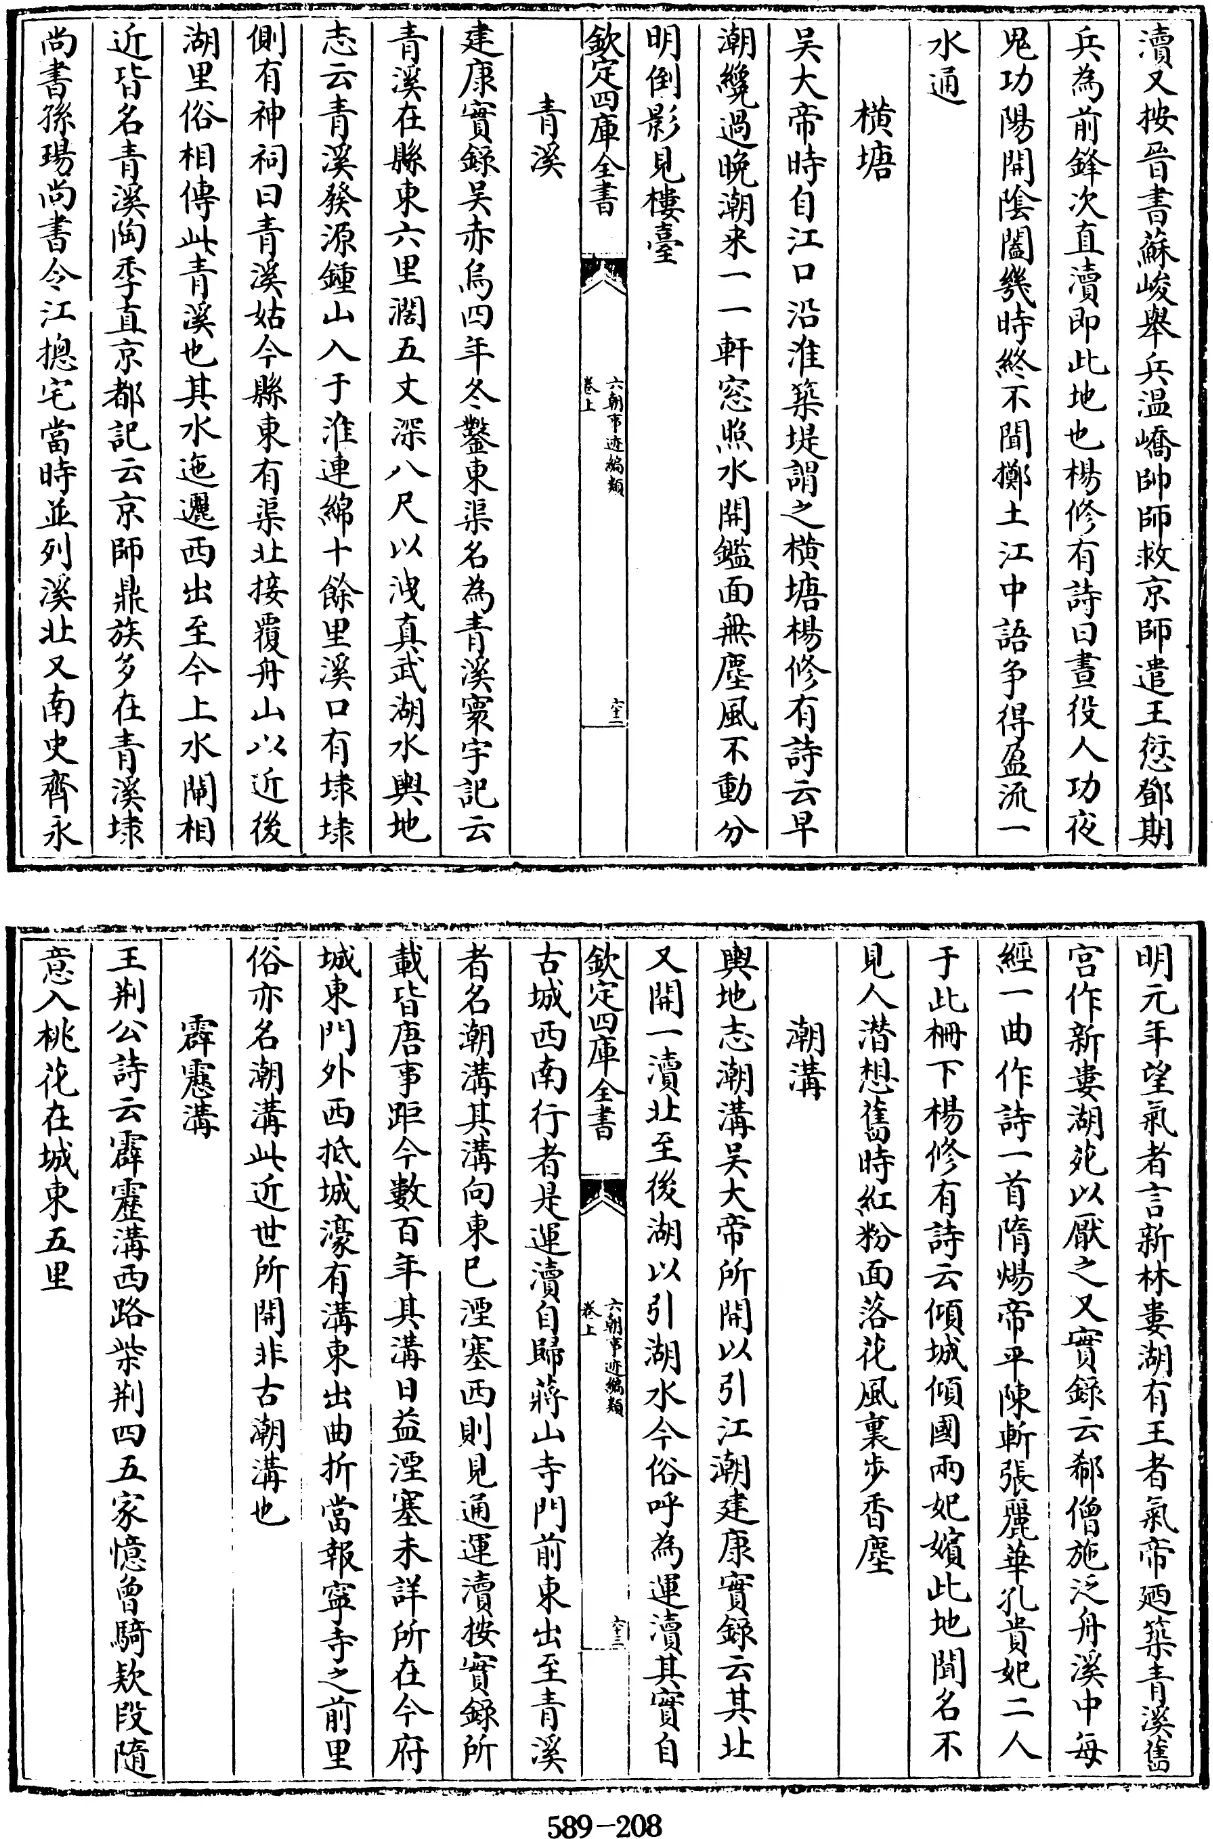 瀆又按晉書蘇峻舉兵温嶠帥師救京師遣王愆鄧期
兵為前鋒次直瀆即此地也楊修有詩曰晝役人功夜
鬼功陽開陰闔幾時終不聞擲土江中語争得盈流一
水通
橫塘
吴大帝時自江口沿淮築堤謂之橫塘楊修有詩云早
潮纔過晚潮来一一軒窓照水開鑑面無塵風不動分
明倒影見樓臺
欽定四庫全書
六朝事迹編類
卷上
六十二
青溪
建康實錄吴赤烏四年冬鑿東渠名為青溪寰宇記云
青溪在縣東六里濶五丈深八尺以洩真武湖水輿地
志云青溪發源鍾山入于淮連綿十餘里溪口有埭埭
側有神祠曰青溪姑今縣東有渠北接覆舟山以近後
湖里俗相傳此青溪也其水迤邐西出至今上水閘相
近皆名青溪陶季直京都記云京師鼎族多在青溪埭
尚書孫瑒尚書令江摠宅當時並列溪北又南史齊永
明元年望氣者言新林婁湖有王者氣帝廼築青溪舊
宫作新婁湖苑以厭之又實錄云郗僧施泛舟溪中每
經一曲作詩一首隋煬帝平陳斬張麗華孔貴妃二人
于此柵下楊修有詩云傾城傾國兩妃嬪此地聞名不
見人潜想舊時紅粉面落花風裏步香塵
潮溝
輿地志潮溝吴大帝所開以引江潮建康實錄云其北
又開一瀆北至後湖以引湖水今俗呼為運瀆其實自
欽定四庫全書
六朝事迹編類
卷上
六十三
古城西南行者是運瀆自歸蔣山寺門前東出至青溪
者名潮溝其溝向東已湮塞西則見通運瀆按實錄所
載皆唐事距今數百年其溝日益湮塞未詳所在今府
城東門外西抵城濠有溝東出曲折當報寧寺之前里
俗亦名潮溝此近世所開非古潮溝也
霹靂溝
王荆公詩云霹靂溝西路柴荆四五家憶曾騎欵段隨
意入桃花在城東五里
589-208